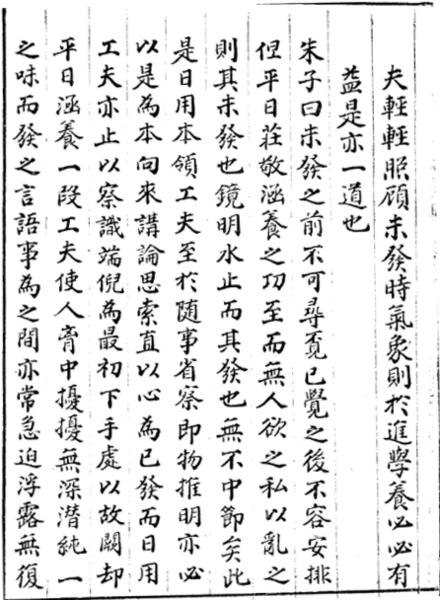 夫輕輕照顧未發時氣象則於進學養心必有
益是亦一道也
朱子曰未發之前不可尋覔已覺之後不容安排
但平日莊敬涵養之功至而無人欲之私以亂之
則其未發也鏡明水止而其發也無不中節矣此
是日用本領工夫至於隨事省察即物推明亦必
以是為本向來講論思索直以心為已發而日用
工夫亦止以察識端倪為最初下手處以故闕却
平日涵養一段工夫使人胷中擾擾無深潛純一
之味而發之言語事為之間亦常急迫浮露無復